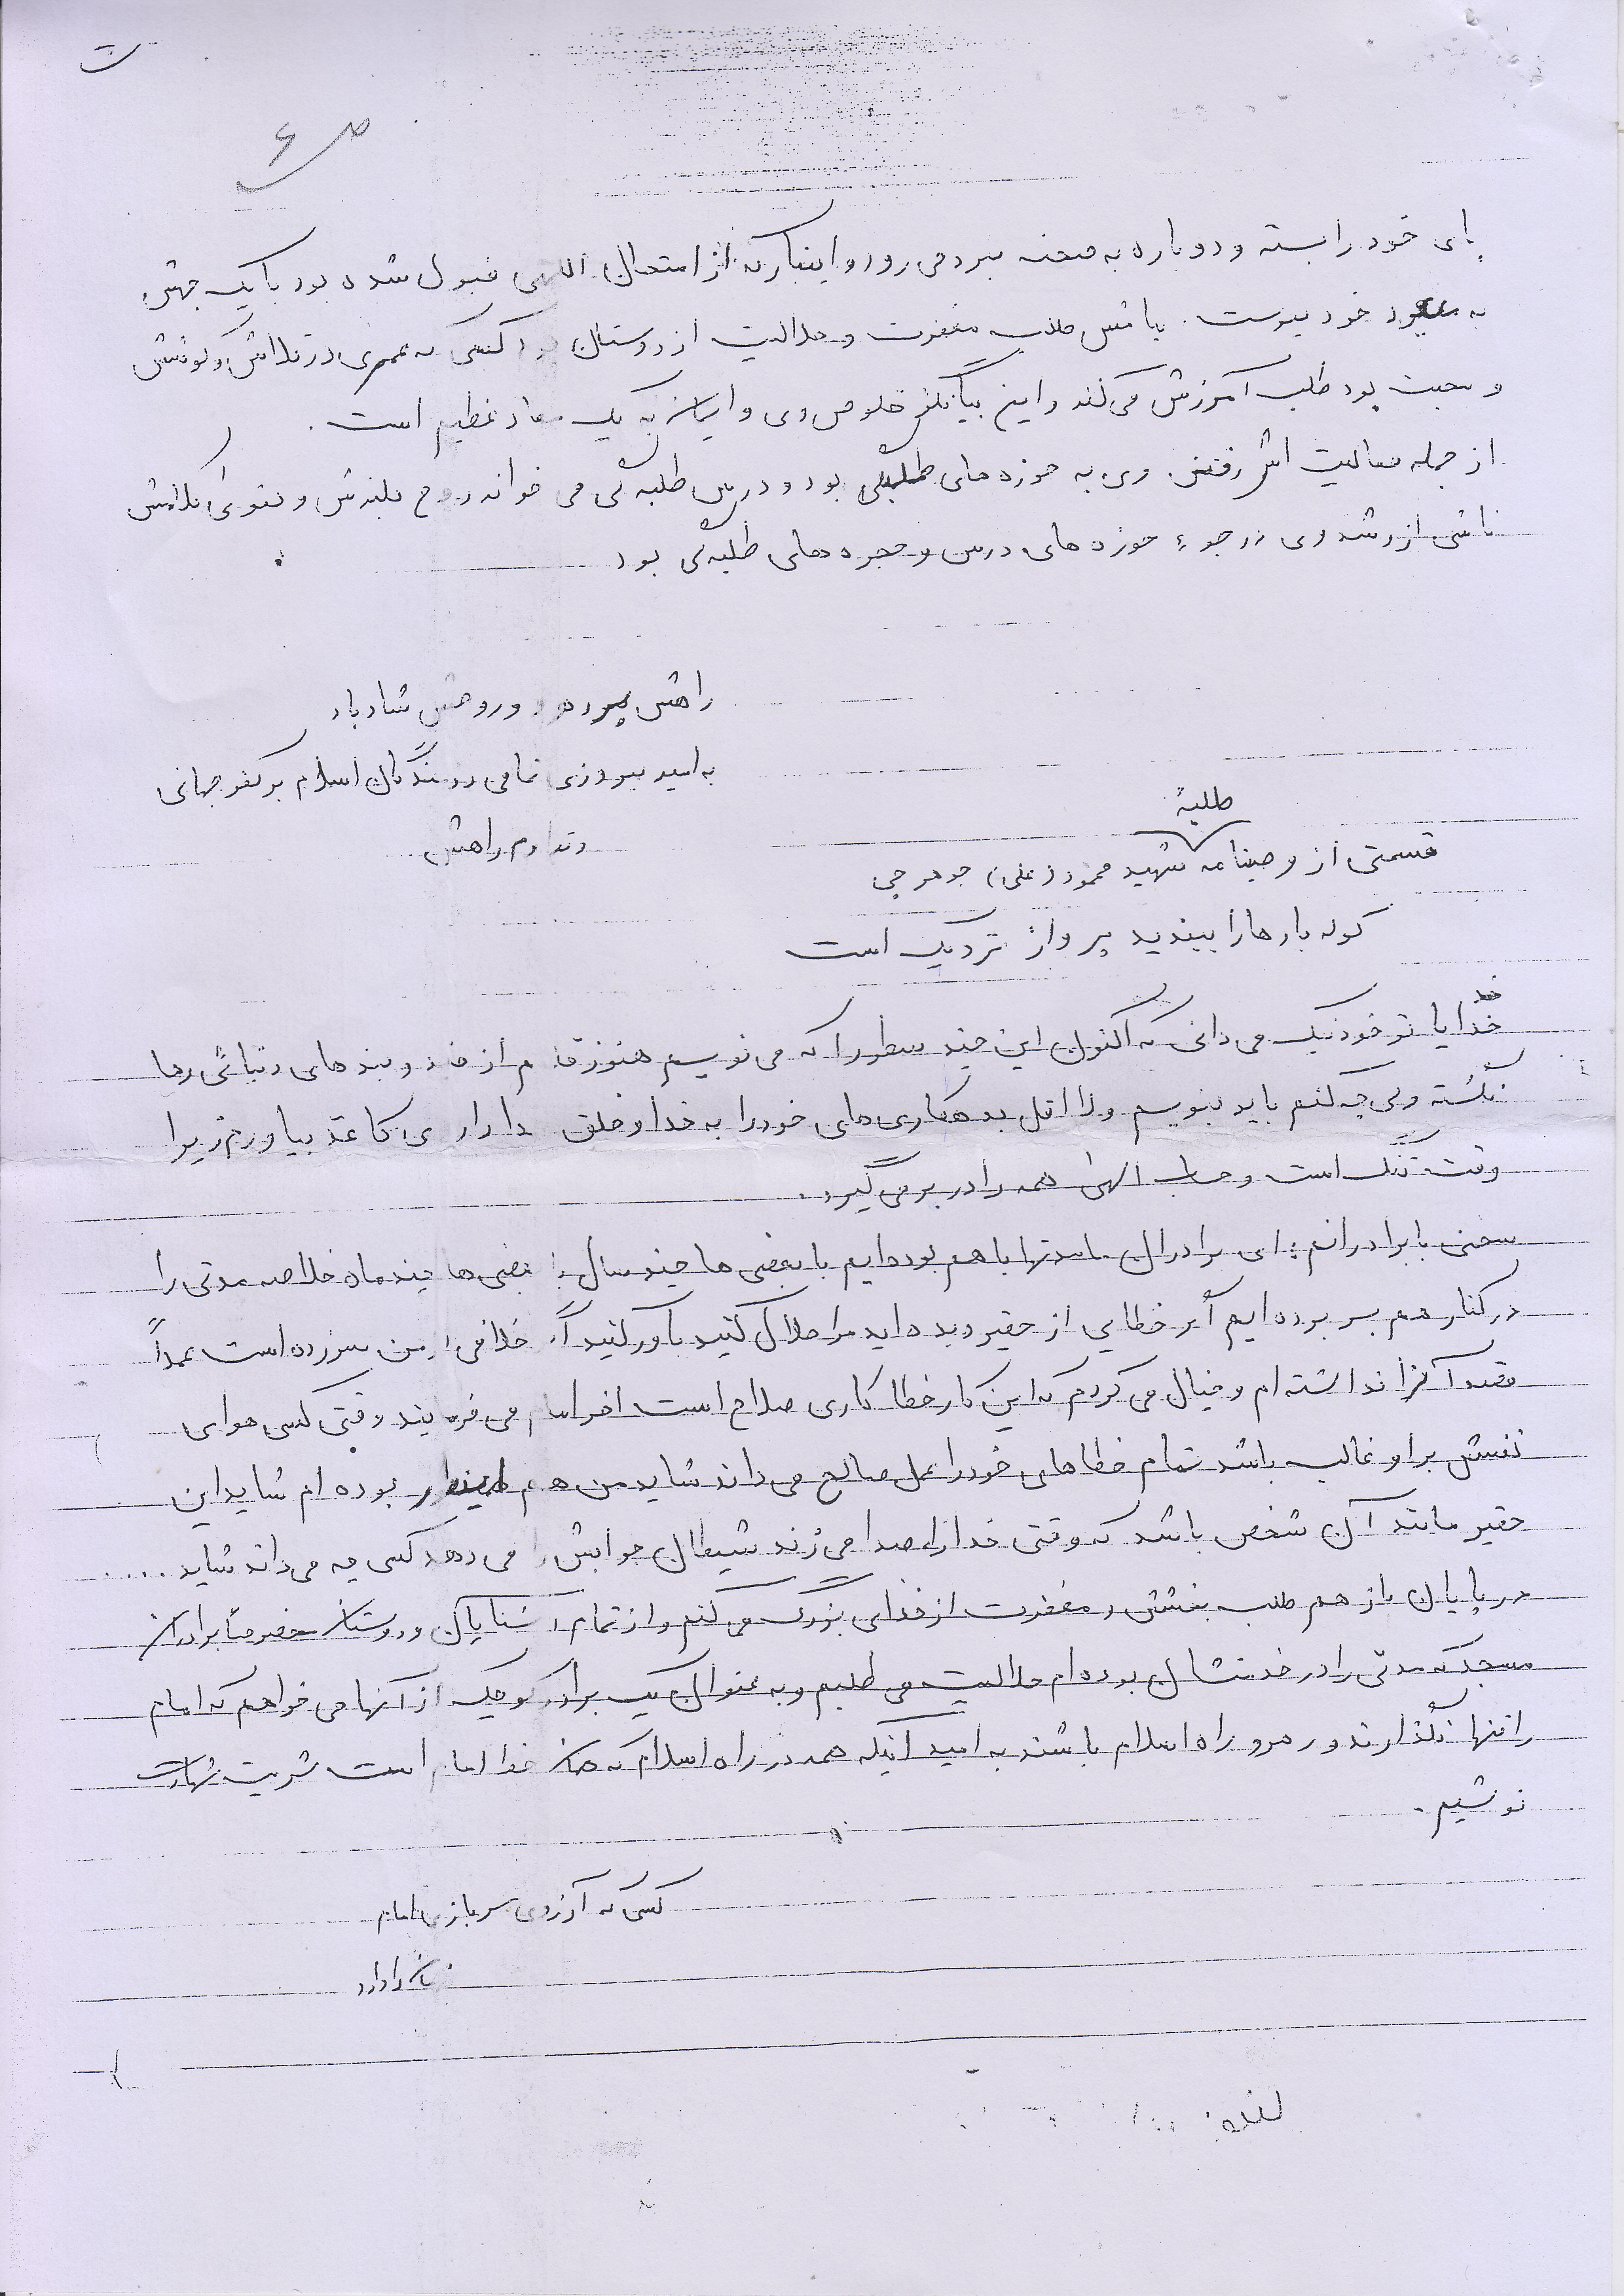 ت
ص ۶
پای خود را بسته و دوباره به صحنه نبرد می رود و اینبار که از امتحان اللهی قبول شده بود با یک جهش
به معبود خود پیوست. پیامش طلب مغفرت و حلالیت از دوستان بود کسی که عمری در تلاش و کوشش
و محبت بود طلب آمرزش می کند و این بیانگر خلوص وی و ایمان به یک معاد عظیم است.
از جمله فعالیت اش رفتن وی به حوزه های طلبگی بود و درس طلبه گی می خواند روح بلندش و تقوی کلامش
ناشی از رشد وی در جوء حوزه های درس و حجره های طلبه گی بود
راهش پر رهرو و روحش شاد باد
به امید پیروزی تمامی رزمندگان اسلام بر کفر جهانی
و تداوم راهش
طلبهٔ
قسمتی از وصیتنامه شهید محمود (علی) جوهرچی
کوله بارها را ببندید پرواز نزدیک است
خدایا تو خود نیک می دانی که اکنون این چند سطور را که می نویسم هنوز قلبم از قید و بندهای دنیائی رها
نگشته ولی چه کنم باید بنویسم و لااقل بدهکاری های خود را به خدا و خلق خدا روی کاغذ بیاورم زیرا
وقت تنگ است و حساب الهی همه را در بر می گیرد.
سخنی با برادرانم: ای برادران ما مدتها با هم بوده ایم با بعضی ها چند سال با بعضی ها چند ماه خلاصه مدتی را
در کنار هم بسر برده ایم اگر خطایی از حقیر دیده اید مرا حلال کنید باور کنید اگر خلافی از من سر زده است عمداً
قصد آنرا نداشته ام و خیال می کردم که این کار خطا کاری صلاح است اخر امام می فرمایند وقتی کسی هوای
نفسش بر او غالب باشد تمام خطاهای خود را عمل صالح می داند شاید من هم اینطور بوده ام شاید این
حقیر مانند آن شخص باشد که وقتی خدا را صدا می زند شیطان جوابش را می دهد کسی چه می داند شاید .....
در پایان باز هم طلب بخشش و مغفرت از خدای بزرگ می کنم و از تمام آشنایان و دوستان خصوصاً برادران
مسجد که مدتی را در خدمتشان بوده ام حلالیت می طلبم و به عنوان یک برادر کوچک از آنها می خواهم که امام
را تنها نگذارند و رهرو راه اسلام باشند به امید آنیکه همه در راه اسلام که همان خط امام است شربت شهادت
نوشیم.
کسی که آرزوی سربازی امام
زمان را دارد